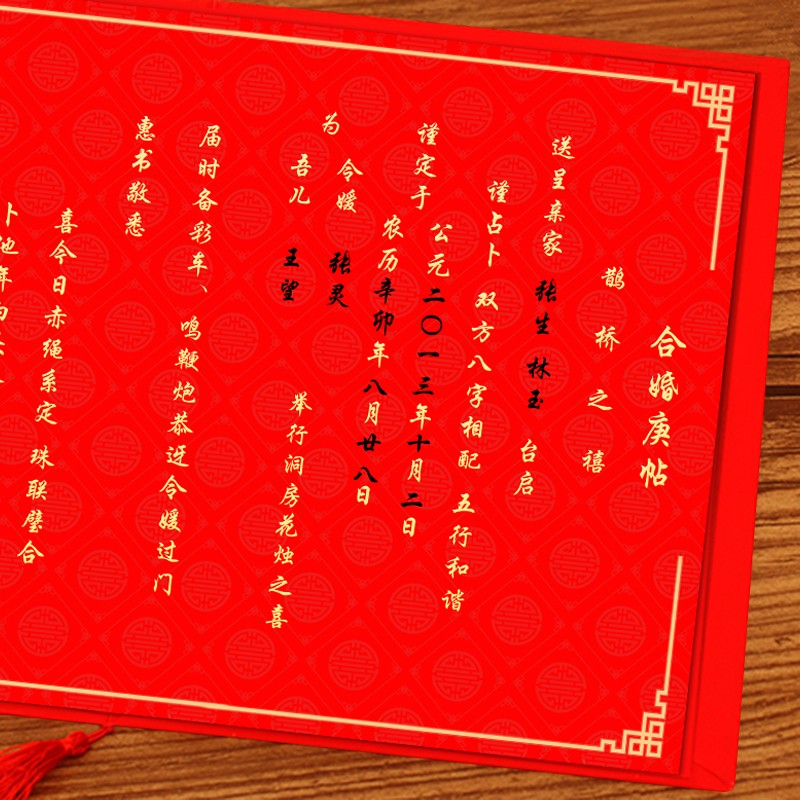 合婚庚帖
鹊桥之禧
送呈亲家 张生 林玉 台启
谨占卜 双方八字相配 五行和谐
谨定于 公元二〇一三年十月二日
农历辛卯年八月廿八日
为 令嫒 张灵
吾儿 王望 举行洞房花烛之喜
届时备彩车、鸣鞭炮恭迓令嫒过门
惠书敬悉
喜今日赤绳系定 珠联璧合
卜他年